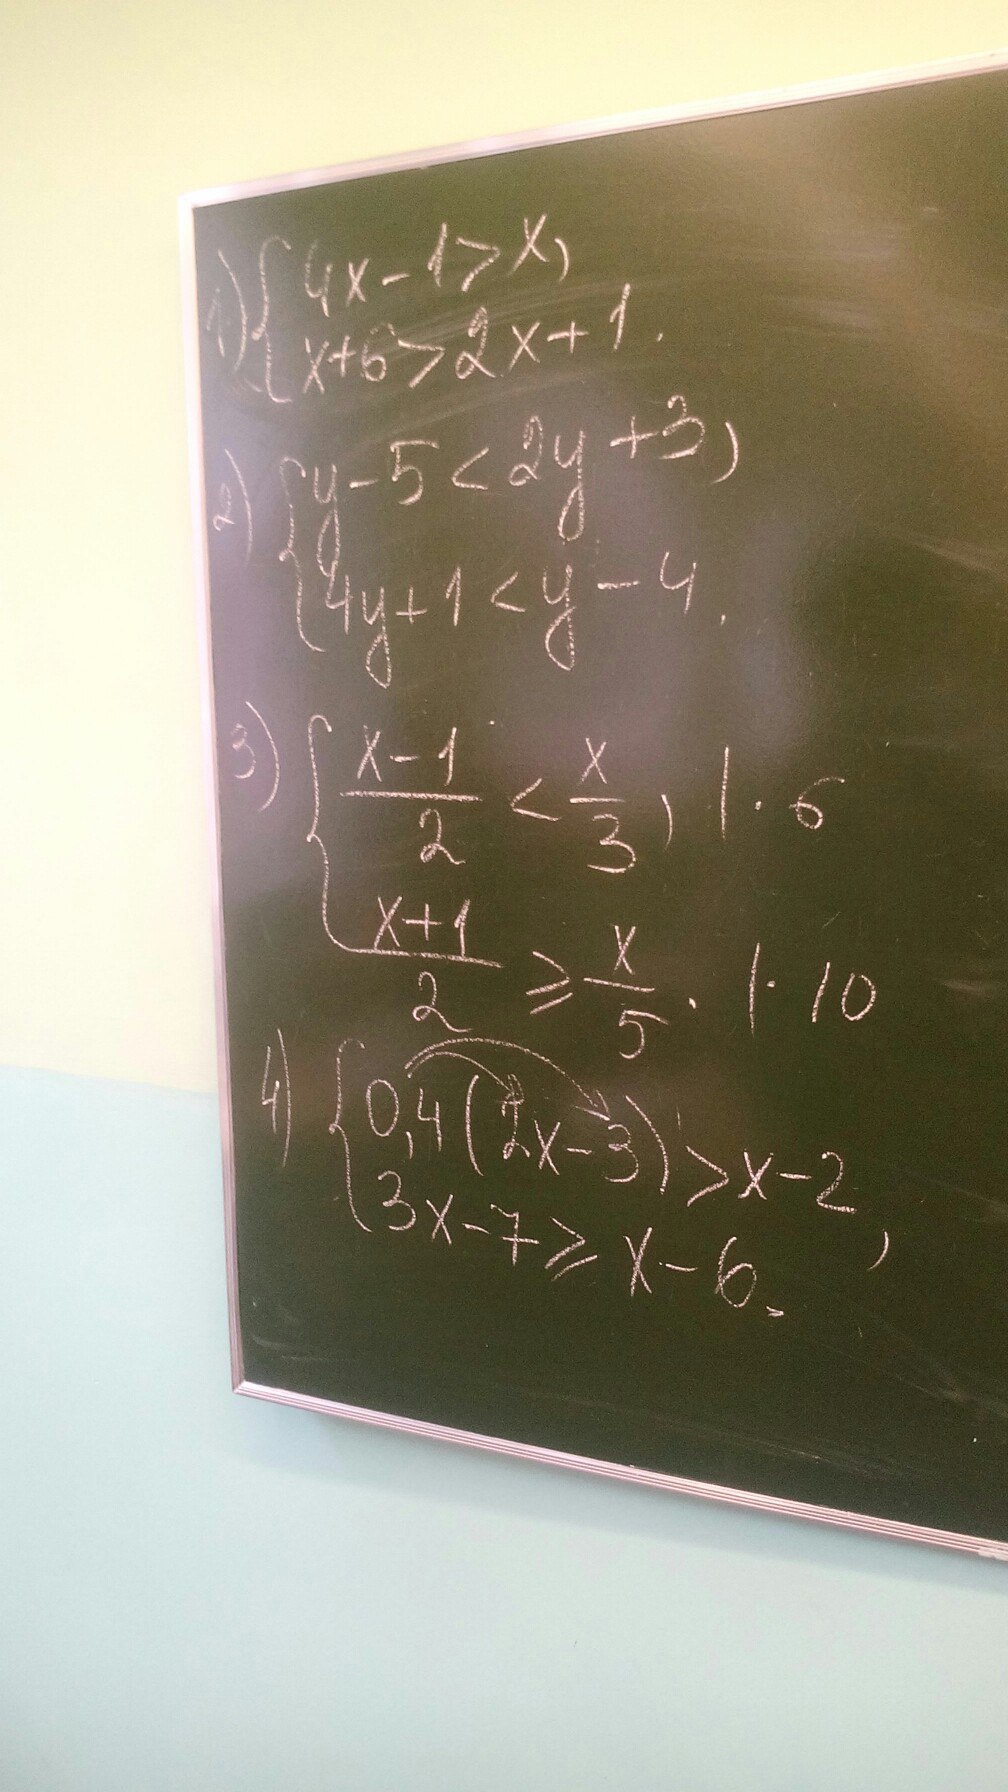 1) { 4x - 1 > x,
x + 6 > 2x + 1.
2) { y - 5 < 2y + 3,
4y + 1 < y - 4.
3) { (x - 1)/2 < x/3, | · 6
(x + 1)/2 ⩾ x/5. | · 10
4) { 0,4(2x - 3) > x - 2,
3x - 7 ⩾ x - 6.